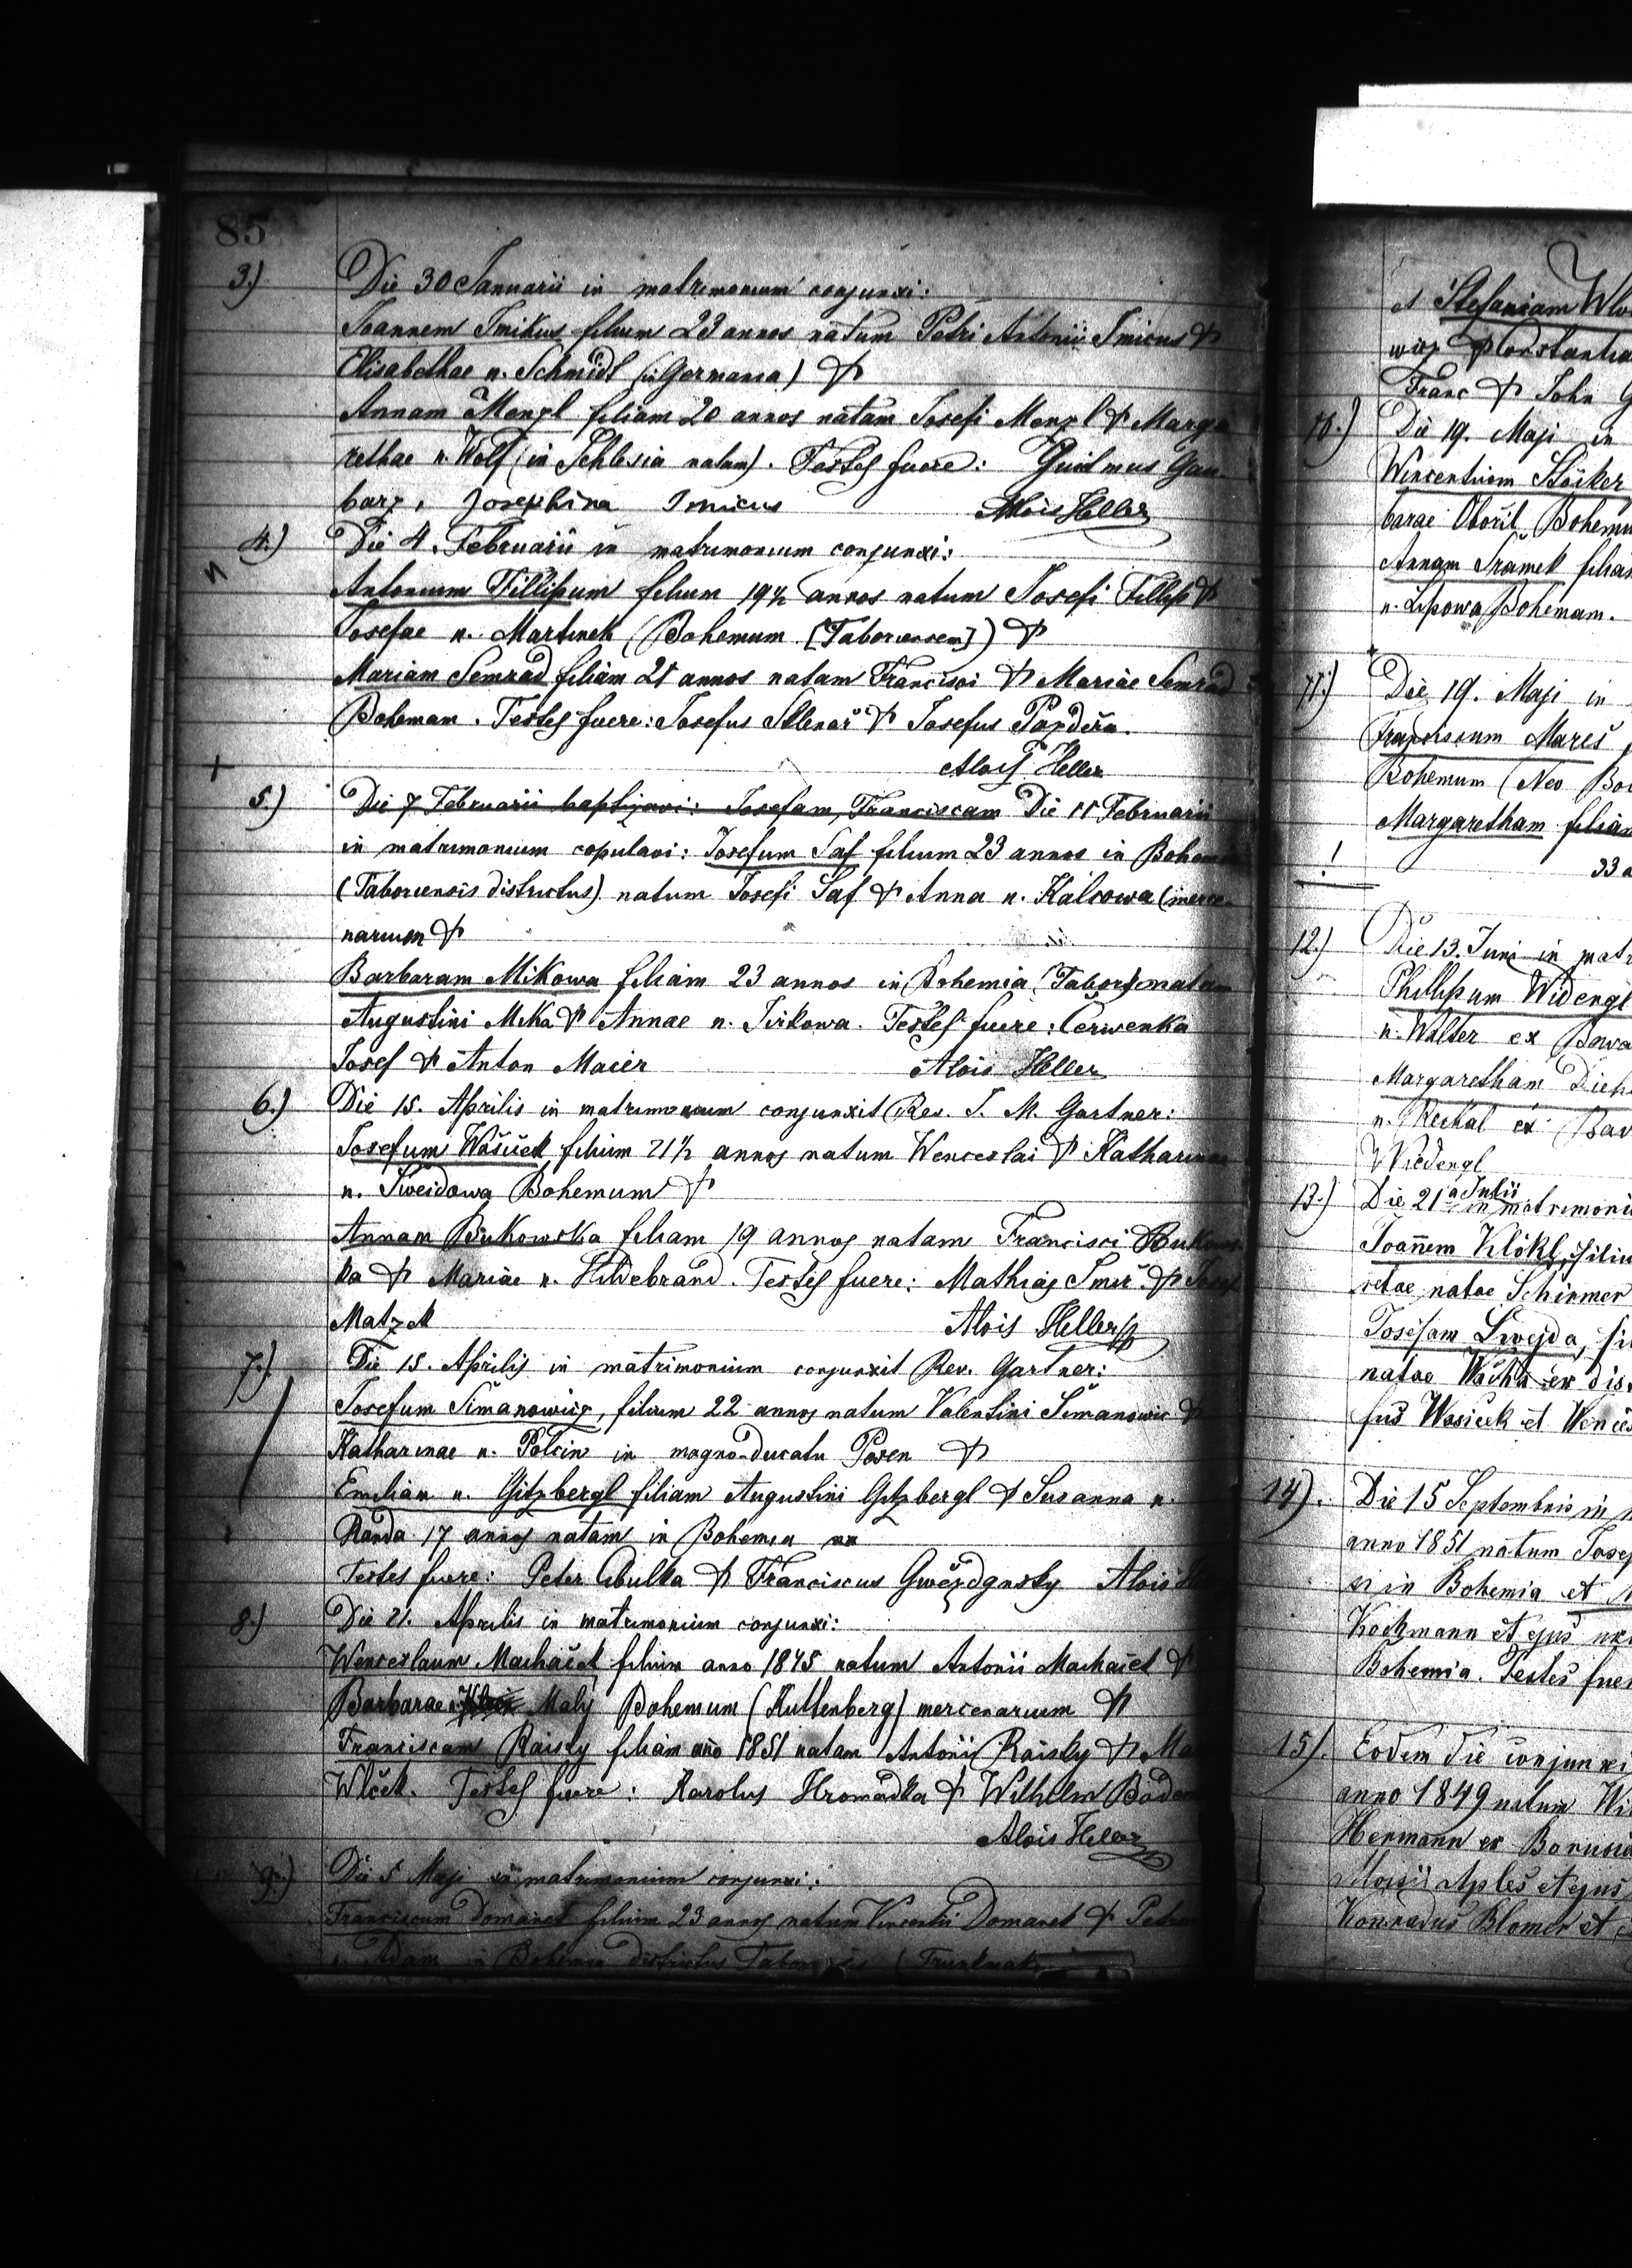 85
3.) Die 30 Januarii in matrimonium conjunxi:
Joannem Smikus filium 23 annos natum Petri Antonii Smicus &
Elisabethae n. Schmidt (in Germania) &
Annam Mengl filiam 20 annos natam Josefi Menzl & Marga
rethae n. Wolf (in Schlesia natam). Testes fuere: Guilmus Gau
barz, Josephina Smicus Alois Heller
4.) Die 4. Februarii in matrimonium conjunxi:
Antonium Fillipum filium 19½ annos natum Josefi Fillip &
Josefae n. Martinek (Bohemum [Taboriensem]) &
Mariam Semrad filiam 21 annos natam Francisci & Mariae Semrad
Boheman. Testes fuere: Josefus Sklenař & Josefus Pazdéra.
Alois Heller
5.) Die 7 Februarii baptizavi: Josefam, Franciscam Die 11 Februarii
in matrimonium copulavi: Josefum Saf filium 23 annos in Bohemia
(Taboriensis districtus) natum Josefi Saf & Anna n. Kalcowa (merce
narium &
Barbaram Mikowa filiam 23 annos in Bohemia (Tabor) natam
Augustini Mika & Annae n. Jirkowa. Testes fuere: Čerwenka
Josef & Anton Maier Alois Heller
6.) Die 15. Aprilis in matrimonium conjunxit Rev. J. M. Gartner:
Josefum Wašiček filium 21½ annos natum Wenceslai & Katharinae
n. Sweidowa Bohemum &
Annam Bukowska filiam 19 annos natam Francisci Bukows
ka & Mariae n. Hildebrand. Testes fuere: Mathias Smu & Josef
Matzek Alois Heller
7.) Die 15. Aprilis in matrimonium conjunxit Rev. Gartner:
Josefum Simanowicz, filium 22 annos natum Valentini Simanowic &
Katharinae n. Polcin in magno-ducatu Posen &
Emilian n. Gitzbergl filiam Augustini Gitzbergl & Susanna n.
Randa 17 annos natam in Bohemia
Testes fuere: Peter Cibulka & Franciscus Gwězdgnsky Alois
8.) Die 21. Aprilis in matrimonium conjunxi:
Wenceslaum Machaček filium anno 1845 natum Antonii Machaček &
Barbarae Maly Bohemum (Kuttenberg) mercenarium &
Franciscam Raisky filiam año 1851 natam Antonii Raisky & Ma
Wlček. Testes fuere: Karolus Hromadka & Wilhelm Bade
Alois Heller
9.) Die 5 Maji in matrimonium conjunxi:
Franciscum Domanet filium 23 annos natum Vincentii Domanet & Petro
n. Adam in Bohemia districtus Tabor
et Stefaniam Wlo
wicz & Constantia
Franc & John G
10.) Die 19. Maji in
Wincentium Stöcker
barae Obořil Bohemu
Annam Šramek filiam
n. Lipowa Bohemam.
11.) Die 19. Maji in
Franciscum Mareš
Bohemum (Neo Bo
Margaretham filiam
! 33 a
12.) Die 13. Juni in matr
Phillipum Widengl
n. Walter ex Bava
Margaretham Dieh
n. Reckal ex Bav
Wiedengl
13.) Die 21 a Julii in matrimoni
Joannem Klökl, filiu
retae natae Schirmer
Josefam Swejda, fil
natae Wacha ex dis
fus Wasicek et Wences
14). Die 15 Septembris in m
anno 1851 natum Josep
si in Bohemia et
Kockmann et ejus ux
Bohemia. Testes fuer
15). Eodem die conjunxi
anno 1849 natum Wi
Hermann ex Borussia
Aloisii Aples et ejus
Konradus Blomer et